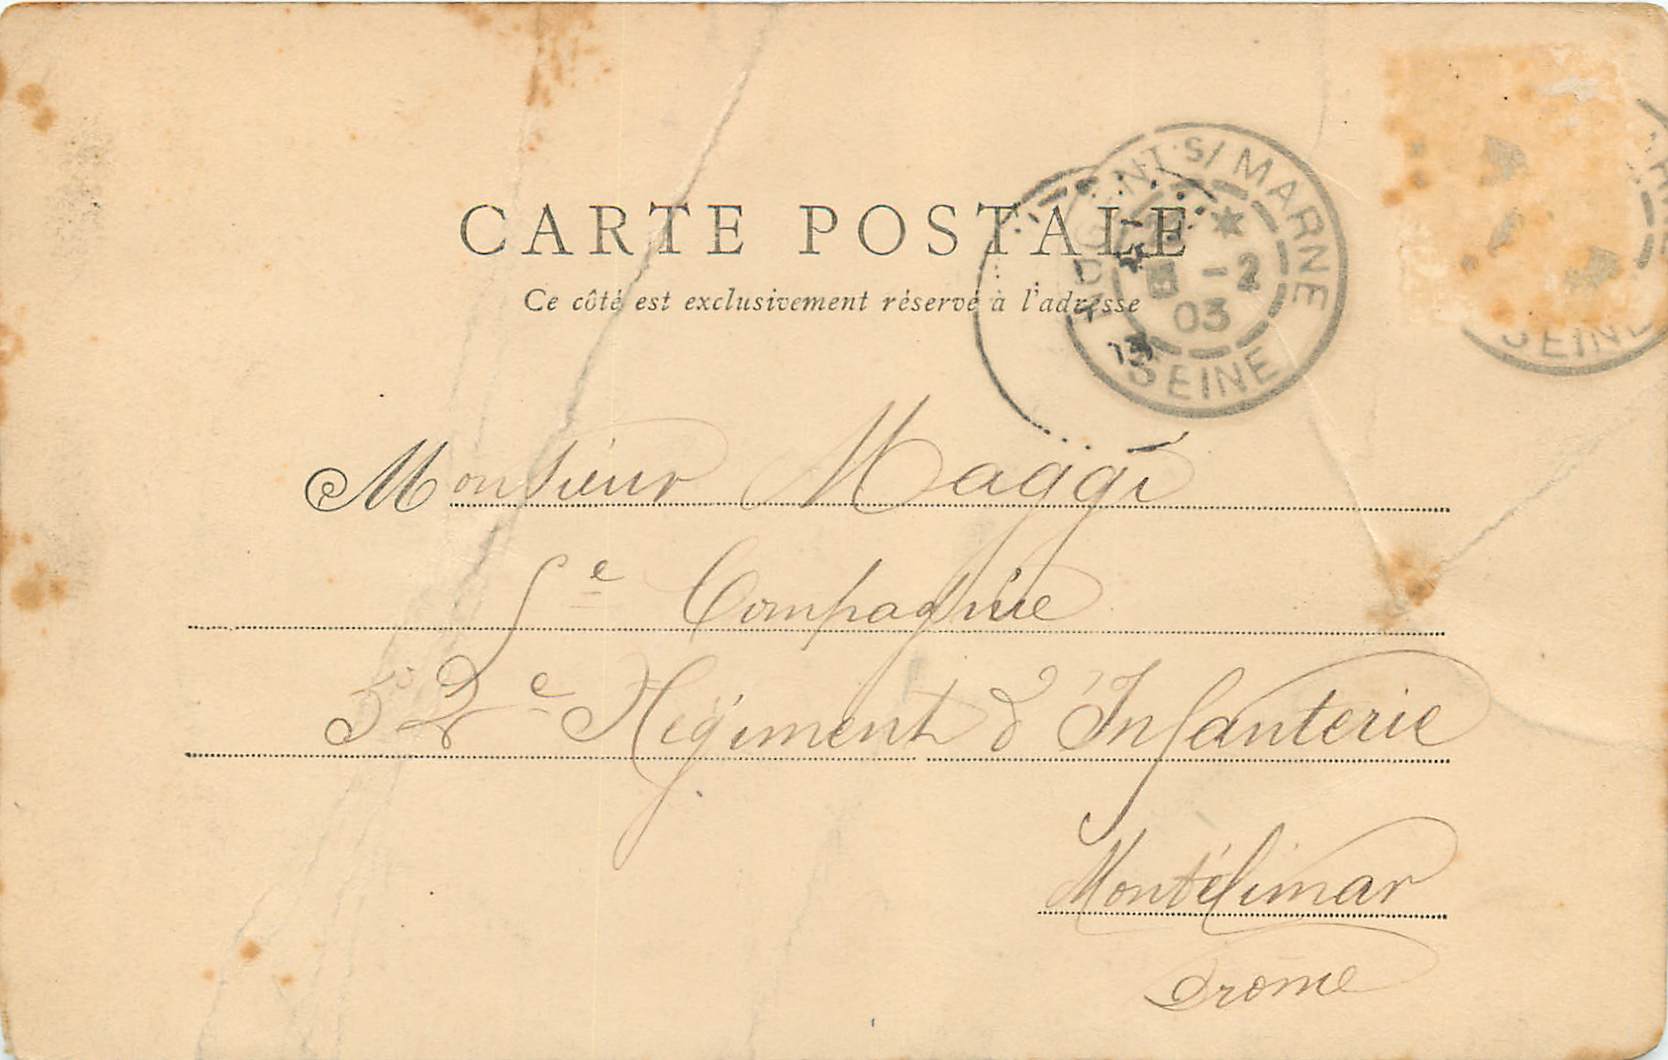 CARTE POSTALE
Ce côté est exclusivement réservé à l'adresse
NOGENT S/ MARNE
-2
03
SEINE
SEINE
Monsieur Maggi
5e Compagnie
52e Régiment d'Infanterie
Montélimar
Drôme